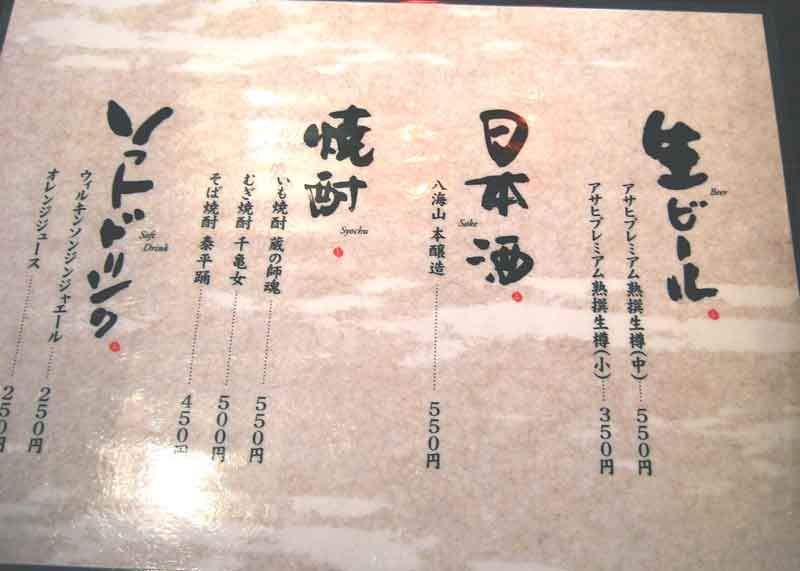 生ビール
Beer
アサヒプレミアム熟撰生樽(中)……550円
アサヒプレミアム熟撰生樽(小)……350円
日本酒
Sake
八海山 本醸造……550円
焼酎
Syochu
いも焼酎 蔵の師魂……550円
むぎ焼酎 千亀女……500円
そば焼酎 泰平踊……450円
ソフトドリンク
Soft Drink
ウィルキンソンジンジャエール……250円
オレンジジュース……250円